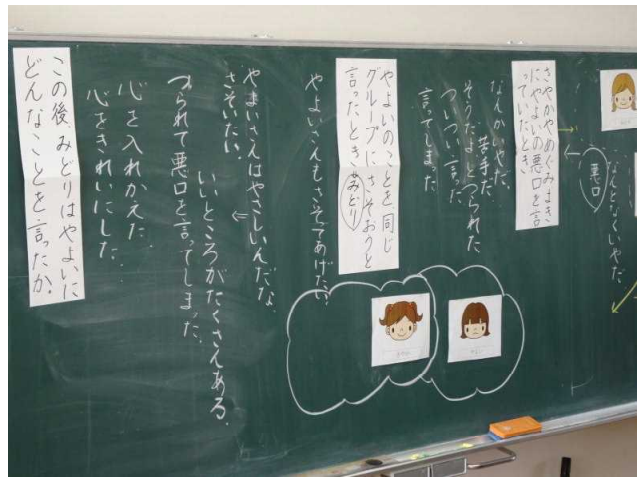 なんとなくいやだ
悪口
さやかやめぐみはき
にやよいの悪口を言
っていたとき
なんかいやだ。
苦手だ。
そうだよとつられた
ついつい言った
言ってしまった
やよいのことを同じ
グループにさそおうと
言ったとき
みどり
やよいさんもさそてあげたい。
やよいさんはやさしいんだな。
さそいたい。
いいところがたくさんある。
つられて悪口を言ってしまった。
心を入れかえた。
心をきれいにした。
この後、みどりはやよいに
どんなことを言ったか。